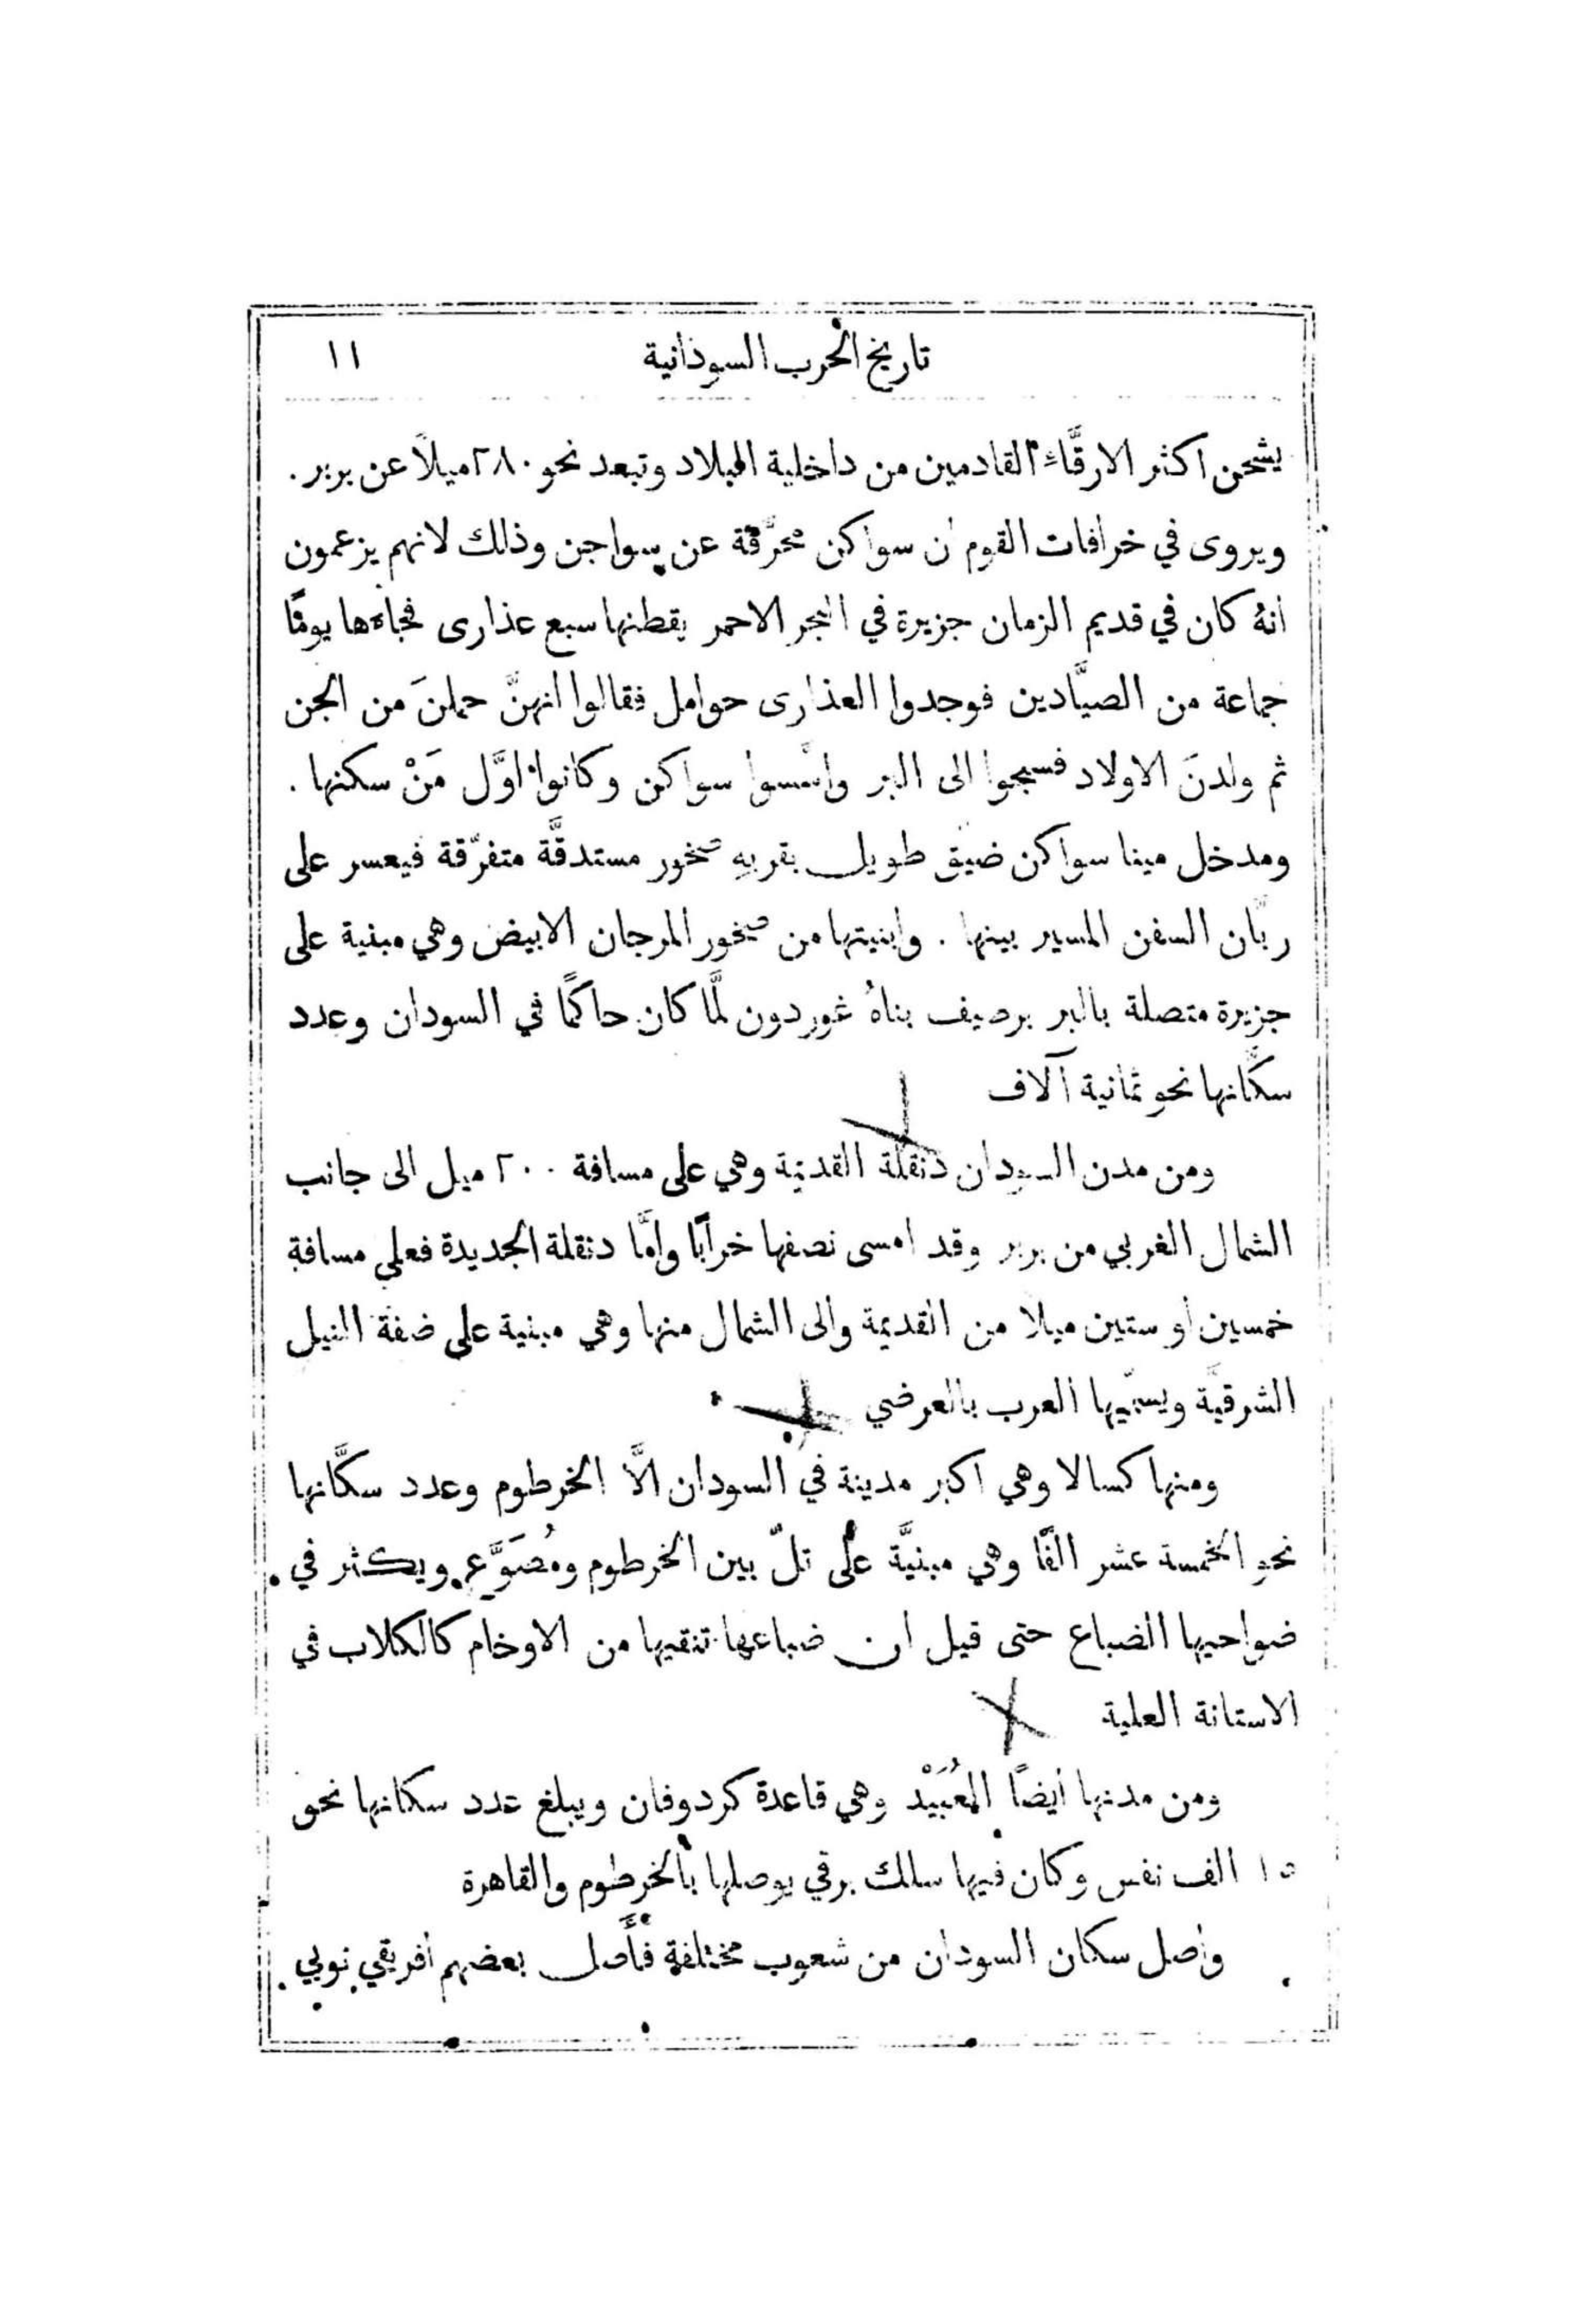 تاريخ الحرب السودانية ١١
يشحن اكثر الارقَّاء القادمين من داخلية البلاد وتبعد نحو ٢٨٠ ميلاً عن بربر .
ويروى في خرافات القوم ان سواكن محرَّفة عن سواجن وذلك لانهم يزعمون
انهُ كان في قديم الزمان جزيرة في البحر الاحمر يقطنها سبع عذارى فجاءها يومًا
جماعة من الصيَّادين فوجدوا العذارى حوامل فقالوا انهنَّ حملنَ من الجن
ثم ولدنَ الاولاد فسبحوا الى البر واسَّسوا سواكن وكانوا اوَّل مَنْ سكنها .
ومدخل مينا سواكن ضيق طويل بقربهِ صخور مستدقَّة متفرّقة فيعسر على
ربَّان السفن المسير بينها . وابنيتها من صخور المرجان الابيض وهي مبنية على
جزيرة متصلة بالبر برصيف بناهُ غوردون لمَّا كان حاكمًا في السودان وعدد
سكَّانها نحو ثمانية آلاف
ومن مدن السودان دنقلة القديمة وهي على مسافة ٢٠٠ ميل الى جانب
الشمال الغربي من بربر وقد امسى نصفها خرابًا وامَّا دنقلة الجديدة فعلى مسافة
خمسين او ستين ميلا من القديمة والى الشمال منها وهي مبنية على ضفة النيل
الشرقيَّة ويسمّيها العرب بالعرضي
ومنها كسالا وهي اكبر مدينة في السودان الَّا الخرطوم وعدد سكَّانها
نحو الخمسة عشر الفًا وهي مبنيَّة على تلّ بين الخرطوم ومُصَوَّع ويكثر في
ضواحيها الضباع حتى قيل ان ضباعها تنقيها من الاوخام كالكلاب في
الاستانة العلية
ومن مدنها أيضًا المُعُبَيْد وهي قاعدة كردوفان ويبلغ عدد سكانها نحو
١٥ الف نفس وكان فيها سلك برقي يوصلها بالخرطوم والقاهرة
واصل سكان السودان من شعوب مختلفة فأَصل بعضهم افريقي نوبي